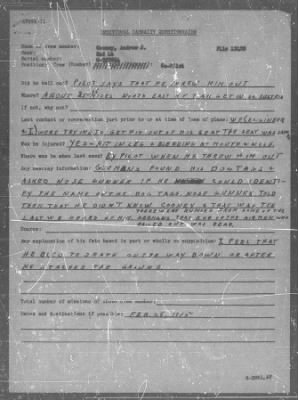 INDIVIDUAL CASUALTY QUESTIONNAIRE
Name of crew member: Cooney, Andrew J.
Rank: 2nd Lt
Position: Crew (Bomber) Co-Pilot
Did he bail out? PILOT SAYS THAT HE THREW HIM OUT
Where? ABOUT 25 MILES NORTH EAST OF
If not, why not?
Last contact or conversation just prior to or at time of loss of plane:
& I WERE TRYING TO GET HIM OUT OF HIS SEAT THE SEAT WAS
Was he injured? YES - HIT IN LEG & BLEEDING AT MOUTH & NOSE.
Where was he when last seen? BY PILOT WHEN HE THREW HIM OUT
Any hearsay information: GERMANS FOUND HIS DOG TAGS &
ASKED NOSE GUNNER IF HE COULD IDENTI-
FY THE NAME ON THE DOG TAGS NOSE GUNNER TOLD
THEM THAT HE DIDN'T KNOW COONEY & THAT WAS THE
LAST WE HEARD OF HIM.
Source:
Any explanation of his fate based in part or wholly on supposition: I FEEL THAT
HE BLED TO DEATH ON THE WAY DOWN OR AFTER
HE REACHED THE GROUND.
Total number of missions of above crew member:
Dates and destinations if possible: FEB 25, 1945